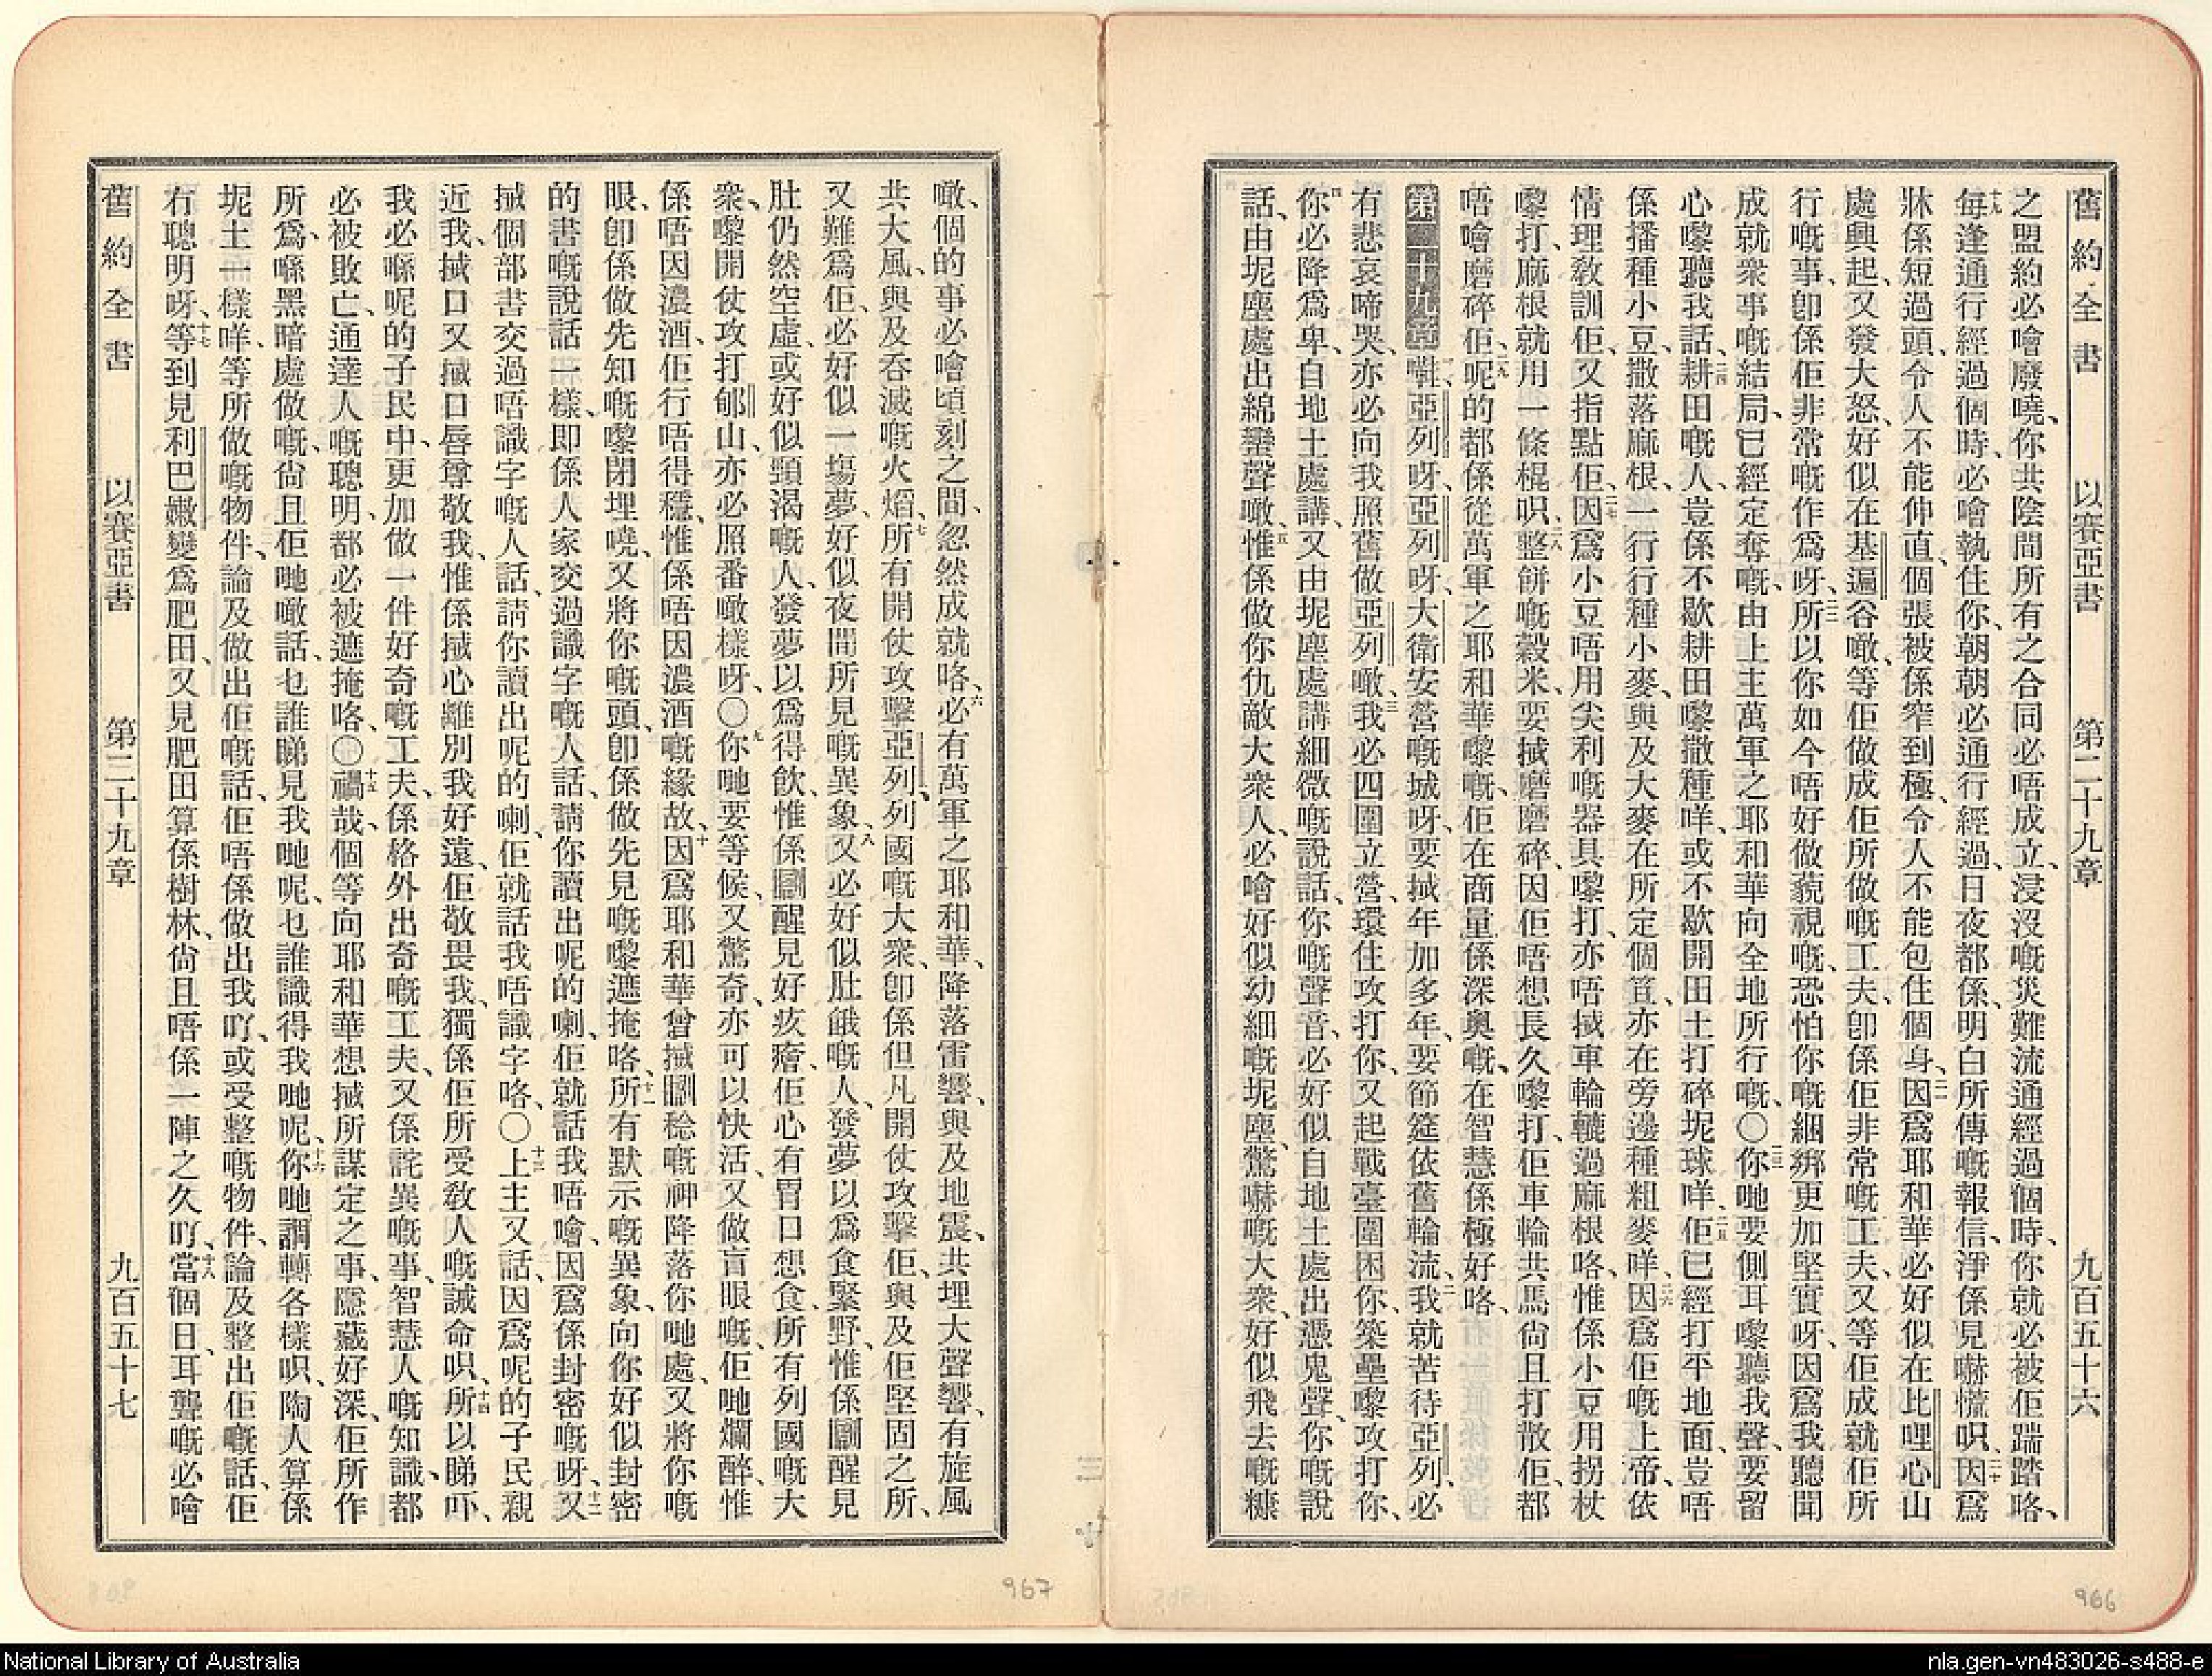 舊約全書 以賽亞書 第二十九章 九百五十六
之盟約必噲廢嘵、你共陰間所有之合同必唔成立、浸沒嘅災難流通經過個時、你就必被佢踹踏咯、
十九每逢通行經過個時、必噲執住你、朝朝必通行經過、日夜都係、明白所傳嘅報信、淨係見嚇慌呮、二十因爲
牀係短過頭、令人不能伸直、個張被係窄到極、令人不能包住個身、二一因爲耶和華必好似在比哩心山
處興起、又發大怒、好似在基遍谷噉、等佢做成佢所做嘅工夫、卽係佢非常嘅工夫、又等佢成就佢所
行嘅事、卽係佢非常嘅作爲呀、二二所以你如今唔好做藐視嘅、恐怕你嘅綑綁更加堅實呀、因爲我聽聞
成就衆事嘅結局、已經定奪嘅、由上主萬軍之耶和華向全地所行嘅、〇二三你哋要側耳嚟聽我聲、要留
心嚟聽我話、二四耕田嘅人、豈係不歇耕田嚟撒種咩、或不歇開田土打碎坭球咩、二五佢已經打平地面、豈唔
係播種小豆、撒落麻根、一行行種小麥、與及大麥在所定個笪、亦在旁邊種粗麥咩、二六因爲佢嘅上帝、依
情理敎訓佢、又指點佢、二七因爲小豆唔用尖利嘅器具嚟打、亦唔搣車輪轆過麻根咯、惟係小豆用拐杖
嚟打、麻根就用一條棍呮、二八整餅嘅穀米、要搣磨磨碎、因佢唔想長久嚟打、佢車輪共馬尙且打散佢、都
唔噲磨碎佢、二九呢的都係從萬軍之耶和華嚟嘅、佢在商量係深奧嘅、在智慧係極好咯、
第二十九章 一囉、亞列呀、亞列呀、大衛安營嘅城呀、要搣年加多年、要節筵依舊輪流、二我就苦待亞列、必
有悲哀啼哭、亦必向我照舊做亞列噉、三我必四圍立營、環住攻打你、又起戰臺圍困你、築壘嚟攻打你、
四你必降爲卑、自地土處講、又由坭塵處講細微嘅說話、你嘅聲音、必好似自地土處出憑鬼聲、你嘅說
話、由坭塵處出綿蠻聲噉、五惟係做你仇敵大衆人、必噲好似幼細嘅坭塵、驚嚇嘅大衆、好似飛去嘅糠
噉、個的事必噲頃刻之間、忽然成就咯、六必有萬軍之耶和華、降落雷響、與及地震、共埋大聲響、有旋風
共大風、與及吞滅嘅火熖、七所有開仗攻擊亞列列國嘅大衆、卽係但凡開仗攻擊佢、與及佢堅固之所、
又難爲佢、必好似一塲夢、好似夜間所見嘅異象、八又必好似肚餓嘅人、發夢以爲食緊野、惟係瞓醒見
肚仍然空虛、或好似頸渴嘅人、發夢以爲得飮、惟係瞓醒見好疚癐、佢心有胃口想食、所有列國嘅大
衆、嚟開仗攻打郇山、亦必照番噉樣呀、〇九你哋要等候、又驚奇、亦可以快活、又做盲眼嘅、佢哋爛醉、惟
係唔因濃酒、佢行唔得穩、惟係唔因濃酒嘅緣故、十因爲耶和華曾搣瞓稔嘅神降落你哋處、又將你嘅
眼、卽係做先知嘅嚟閉埋嘵、又將你嘅頭、卽係做先見嘅嚟遮掩咯、十一所有默示嘅異象、向你好似封密
的書嘅說話一樣、即係人家交過識字嘅人話、請你讀出呢的喇、佢就話我唔噲、因爲係封密嘅呀、十二又
搣個部書交過唔識字嘅人話、請你讀出呢的喇、佢就話我唔識字咯、〇十三上主又話、因爲呢的子民親
近我、搣口又搣口唇尊敬我、惟係搣心離別我好遠、佢敬畏我、獨係佢所受敎人嘅誡命呮、十四所以睇吓、
我必喺呢的子民中、更加做一件好奇嘅工夫、係格外出奇嘅工夫、又係詫異嘅事、智慧人嘅知識、都
必被敗亡、通達人嘅聰明、都必被遮掩咯、〇十五禍哉、個等向耶和華想搣所謀定之事、隱藏好深、佢所作
所爲、喺黑暗處做嘅、尙且佢哋噉話、乜誰睇見我哋呢、乜誰識得我哋呢、十六你哋調轉各樣呮、陶人算係
坭土一樣咩、等所做嘅物件、論及做出佢嘅話、佢唔係做出我吖、或受整嘅物件、論及整出佢嘅話、佢
冇聰明呀、十七等到見利巴嫩變爲肥田、又見肥田算係樹林、尙且唔係一陣之久吖、十八當個日、耳聾嘅必噲
舊約全書 以賽亞書 第二十九章 九百五十七
967
966
National Library of Australia
nla.gen-vn483026-s488-e